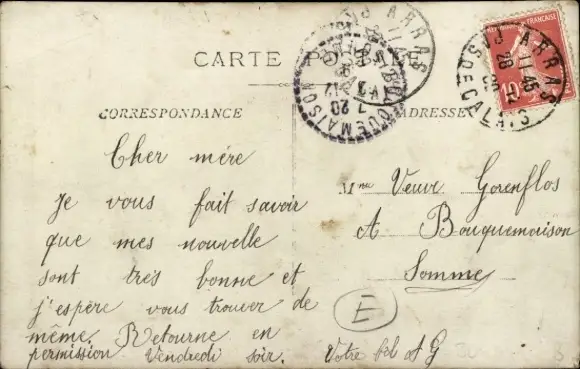 CARTE POSTALE
CORRESPONDANCE
ADRESSE
Cher mère
Je vous fait savoir
que mes nouvelle
sont très bonne et
j'espère vous trouver de
même. Retourne en
permission Vendredi soir.
Votre fils A G
Mme Veuve Gorenflos
A Bouquemaison
Somme
E
ARRAS
PAS DE CALAIS
11 45
28
BOUQUEMAISON
20
10